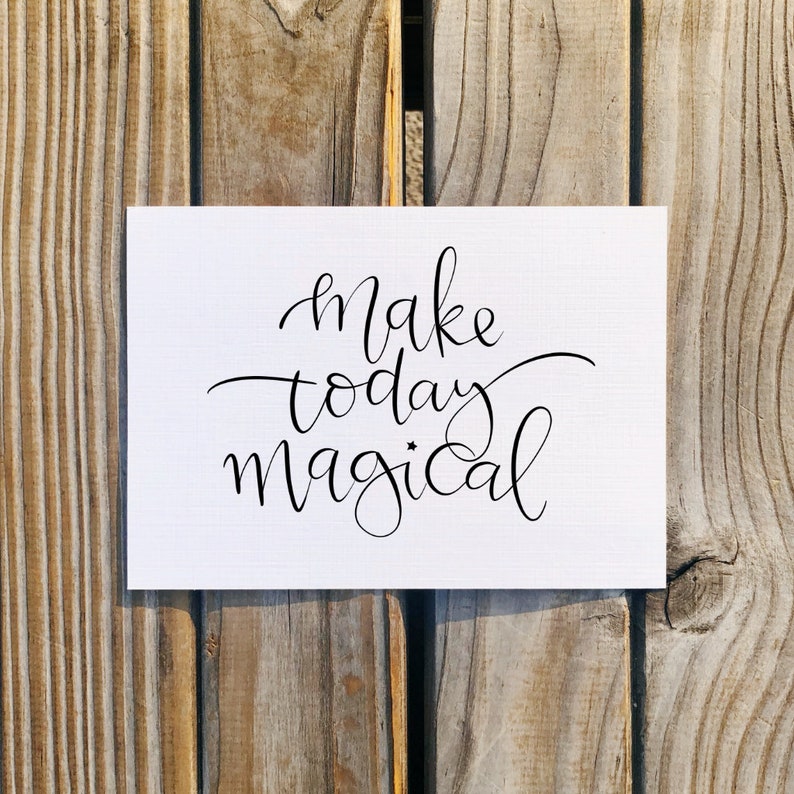 make
today
magical